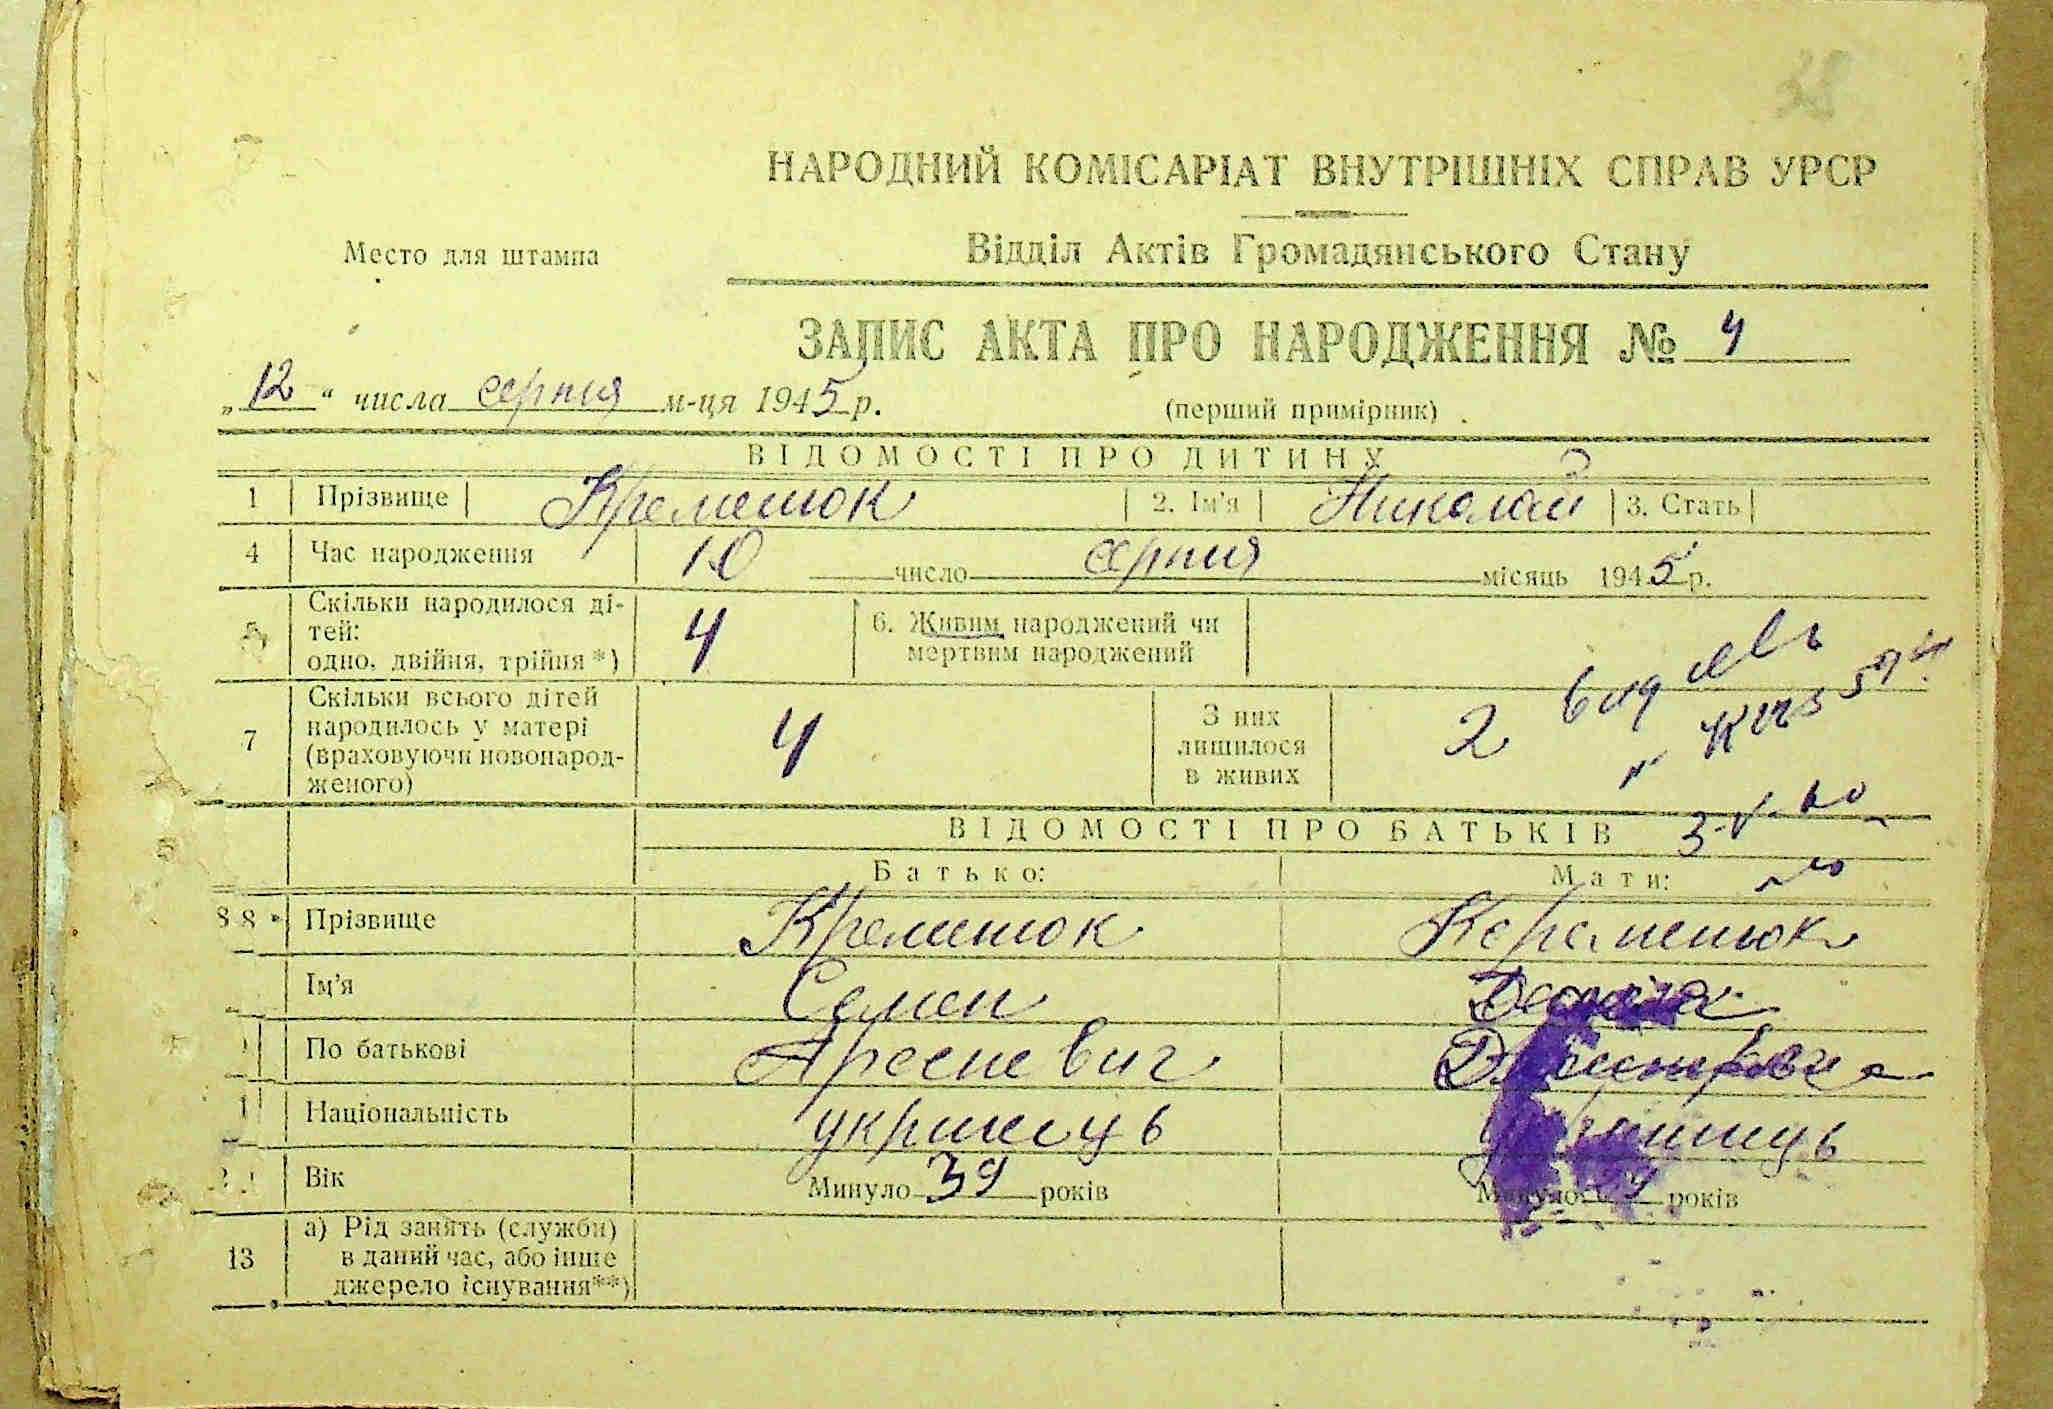 38
НАРОДНИЙ КОМІСАРІАТ ВНУТРІШНІХ СПРАВ УРСР
Место для штампа
Відділ Актів Громадянського Стану
ЗАПИС АКТА ПРО НАРОДЖЕННЯ № 4
„12“ числа серпня м-ця 1945 р.
(перший примірник)
ВІДОМОСТІ ПРО ДИТИНУ
1 Прізвище Кременюк 2. Ім'я Николай 3. Стать
4 Час народження 10 число серпня місяць 1945 р.
5 Скільки народилося ді-
тей:
одно, двійня, трійня*) 4
6. Живим народжений чи
мертвим народжений
7 Скільки всього дітей
народилось у матері
(враховуючи новонарод-
женого) 4
З них
лишилося
в живих 2
ВІДОМОСТІ ПРО БАТЬКІВ
Батько: Мати:
8 8 Прізвище Кременюк
Ім'я Семен
По батькові Арсеневич
Національність українець
Вік Минуло 39 років Минуло років
13 а) Рід занять (служби)
в даний час, або інше
джерело існування**)